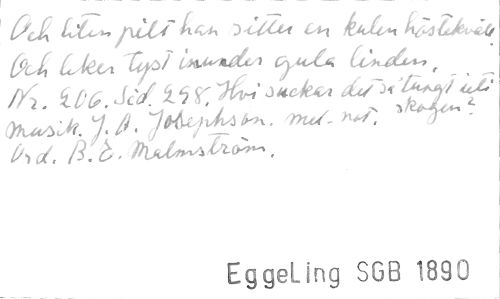 Och liten pilt han sitter en kulen höstekväll
Och leker tyst inunder gula linden.
Nr. 206. Sid. 298. Hvi suckar det så tungt uti
musik. J. A. Josephson. mel-not. skogen?
Ord. B. E. Malmström.
EggeLing SGB 1890